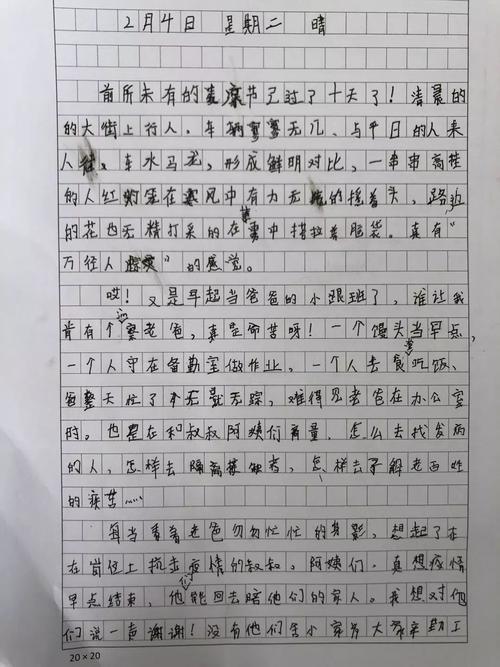 2月4日 星期二 晴
前所未有的春节已过了十天了!清晨的
的大街上行人、车辆寥寥无几、与平日的人来
人往、车水马龙,形成鲜明对比,一串串高挂
的人红灯笼在寒风中有力无的摇着头,路边
的花也无精打采的在雾中搭拉着脑袋。真有“
万径人”的感觉。
哎!又是早起当爸爸的小跟班了,谁让我
肯有个老爸,真是命苦呀!一个馒头当早点,
一个人守在备勤室做作业,一个人去食堂吃饭、
爸整天忙了个无影无踪,难得见老爸在办公室
时。也是在和叔叔阿姨们商量,怎么去找发病
的人,怎样去隔离接触者,怎样去了解老百姓
的疾苦……
每当看着老爸匆匆忙忙的身影,想起了在
在岗位上抗击疫情的叔叔,阿姨们。真想疫情
早点结束,他们能回去陪他们的家人。我想对他
们说一声谢谢!没有他们舍小家为大家辛勤工
20×20